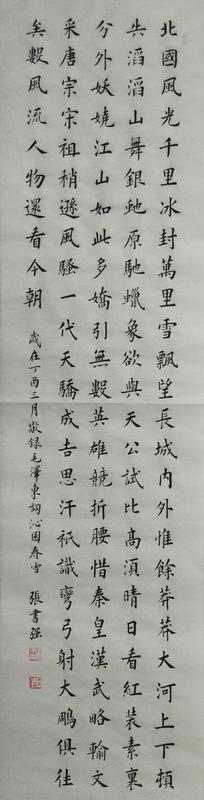 北國風光千里冰封萬里雪飄望長城内外惟餘莽莽大河上下頓
失滔滔山舞銀虵原馳蠟象欲與天公試比高湏晴日看紅裝素裹
分外妖嬈江山如此多嬌引無數英雄競折腰惜秦皇漢武略輸文
采唐宗宋祖稍遜風騷一代天驕成吉思汗祇識彎弓射大鵰俱往
矣數風流人物還看今朝
歲在丁酉三月敬録毛澤東詞沁園春雪 張書强